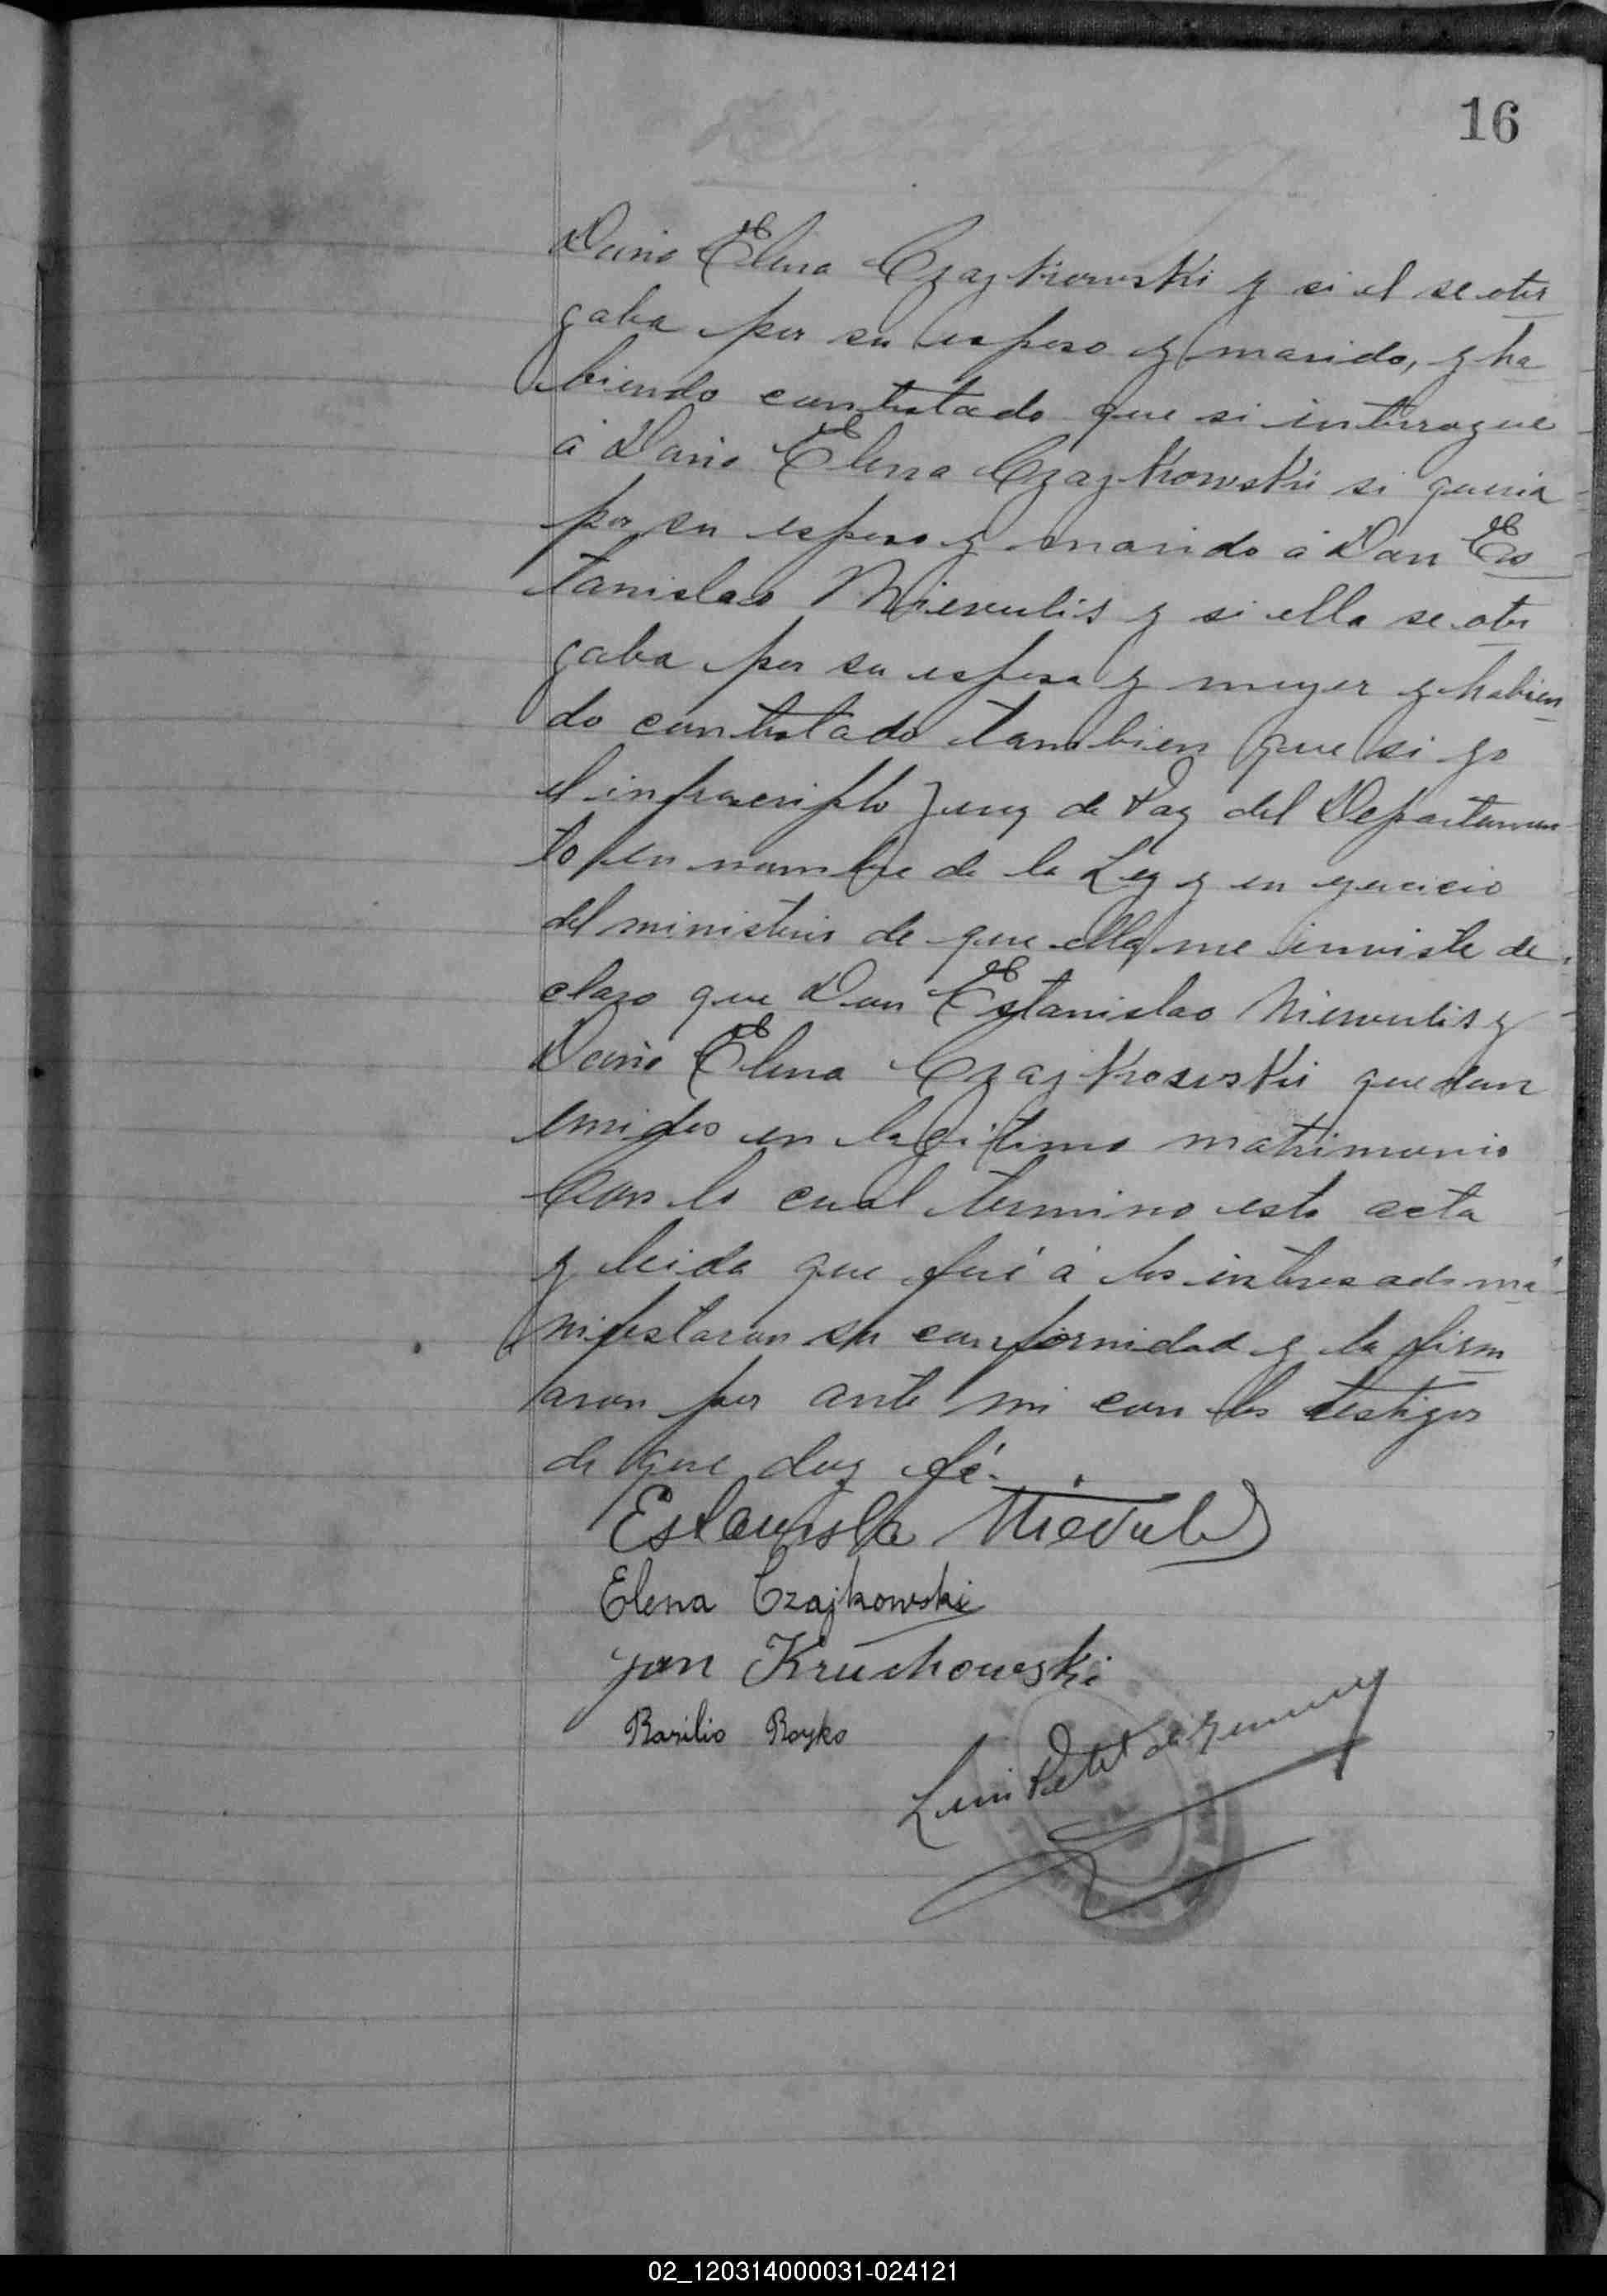 16
Doña Elena Czajkowski y si el se otor
gaba por su esposo y marido, y ha
biendo contestado que si interrogue
á Doña Elena Czajkowski si queria
por su esposo y marido á Don Es
tanislao Mievulis y si ella se otor
gaba por su esposa y mujer y habien
do contestado tambien que si yo
el infrascripto Juez de Paz del Departamen
to en nombre de la Ley y en ejercicio
del ministerio de que ella me inviste de
claro que Don Estanislao Mievulis y
Doña Elena Czajkowski quedan
unidos en legitimo matrimonio
Con lo cual termino esta acta
y leida que fué á los interesados ma
nifestaron su conformidad y la firm
aron por ante mi con los testigos
de que doy fé.
Estanisla Mievulis
Elena Czajkowski
Jan Kruchowski
Basilio Boyko
Luis Petit de
02_120314000031-024121